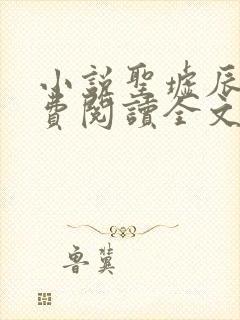 小説聖墟辰
費閱讀全文
魯冀